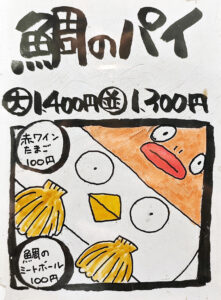 鯛のパイ
大1400円並1300円
赤ワイン
たまご
100円
鯛の
ミートボール
100円